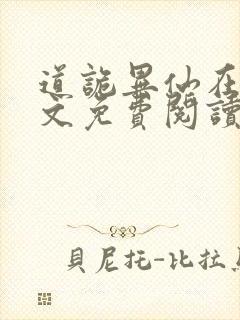 道詭異仙在
文免費閱讀
貝尼托-比拉